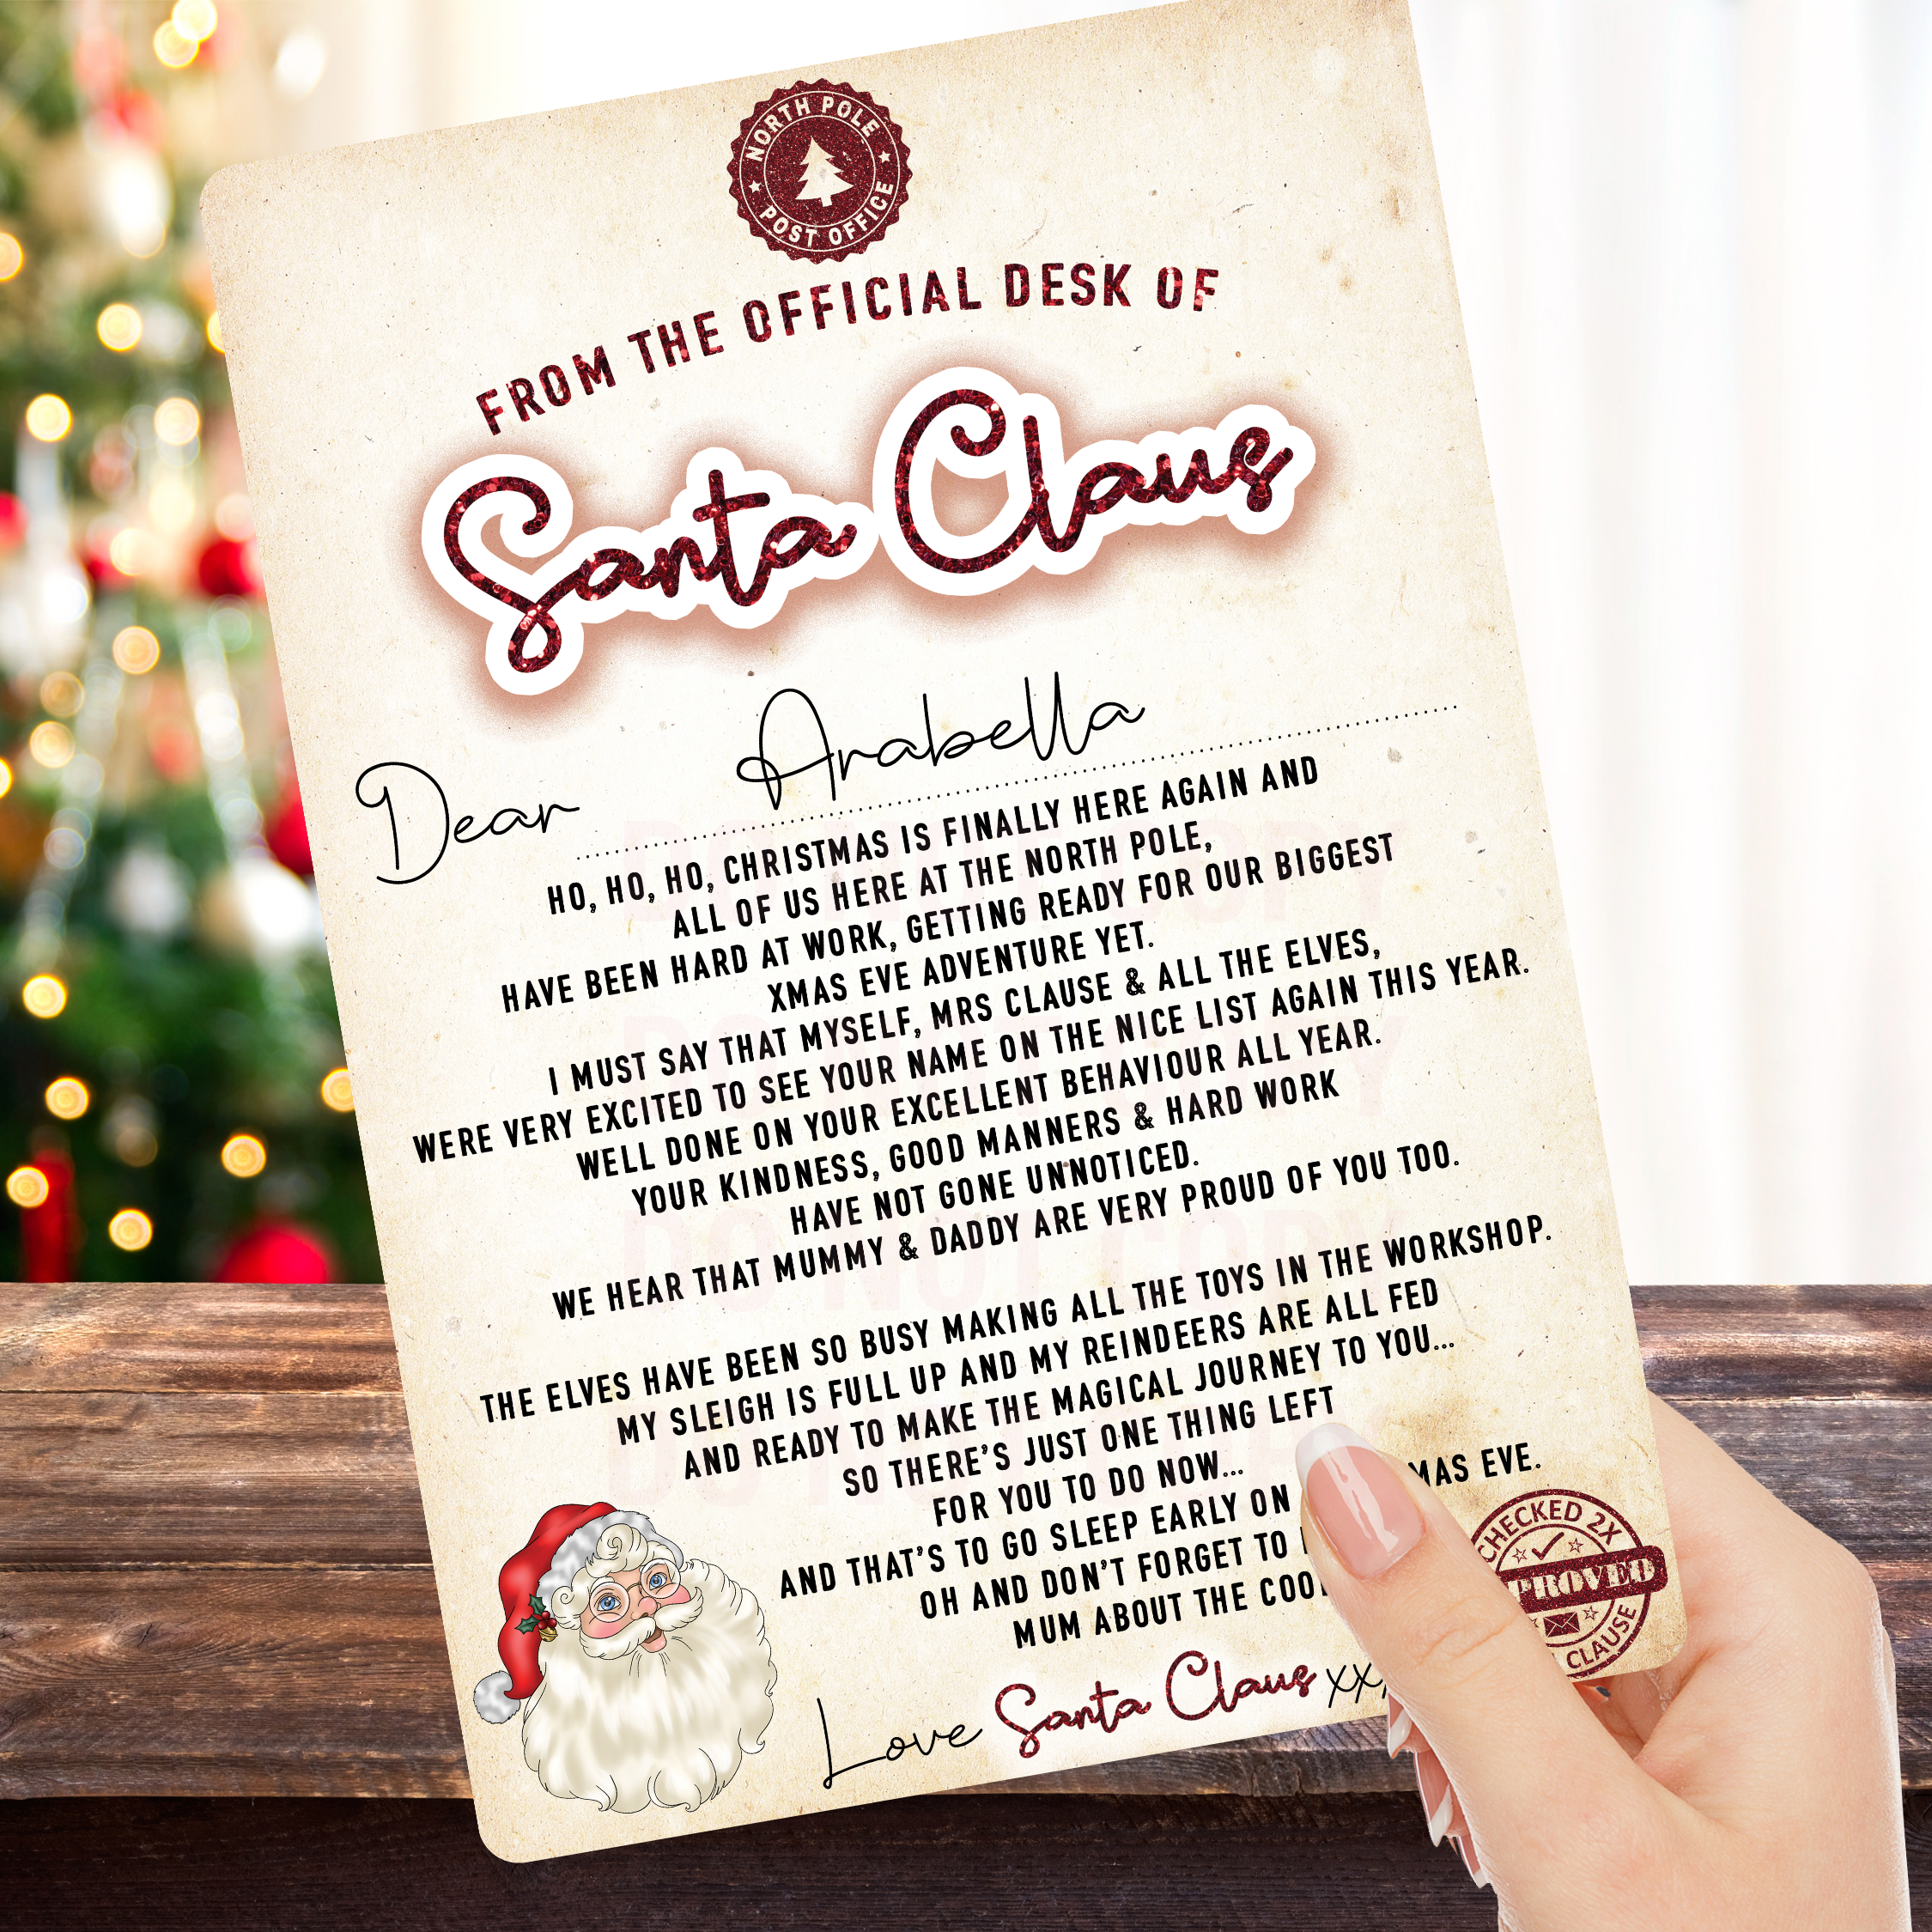 NORTH POLE
POST OFFICE
FROM THE OFFICIAL DESK OF
Santa Claus
Dear Arabella
HO, HO, HO, CHRISTMAS IS FINALLY HERE AGAIN AND
ALL OF US HERE AT THE NORTH POLE,
HAVE BEEN HARD AT WORK, GETTING READY FOR OUR BIGGEST
XMAS EVE ADVENTURE YET.
I MUST SAY THAT MYSELF, MRS CLAUSE & ALL THE ELVES,
WERE VERY EXCITED TO SEE YOUR NAME ON THE NICE LIST AGAIN THIS YEAR.
WELL DONE ON YOUR EXCELLENT BEHAVIOUR ALL YEAR.
YOUR KINDNESS, GOOD MANNERS & HARD WORK
HAVE NOT GONE UNNOTICED.
WE HEAR THAT MUMMY & DADDY ARE VERY PROUD OF YOU TOO.
THE ELVES HAVE BEEN SO BUSY MAKING ALL THE TOYS IN THE WORKSHOP.
MY SLEIGH IS FULL UP AND MY REINDEERS ARE ALL FED
AND READY TO MAKE THE MAGICAL JOURNEY TO YOU...
SO THERE'S JUST ONE THING LEFT
FOR YOU TO DO NOW...
AND THAT'S TO GO SLEEP EARLY ON MAS EVE.
OH AND DON'T FORGET TO
MUM ABOUT THE COO
Love Santa Claus xx
CHECKED 2X
PROVED
CLAUSE
DO NOT COPY
DO NOT COPY
DO NOT COPY
DO NOT COPY